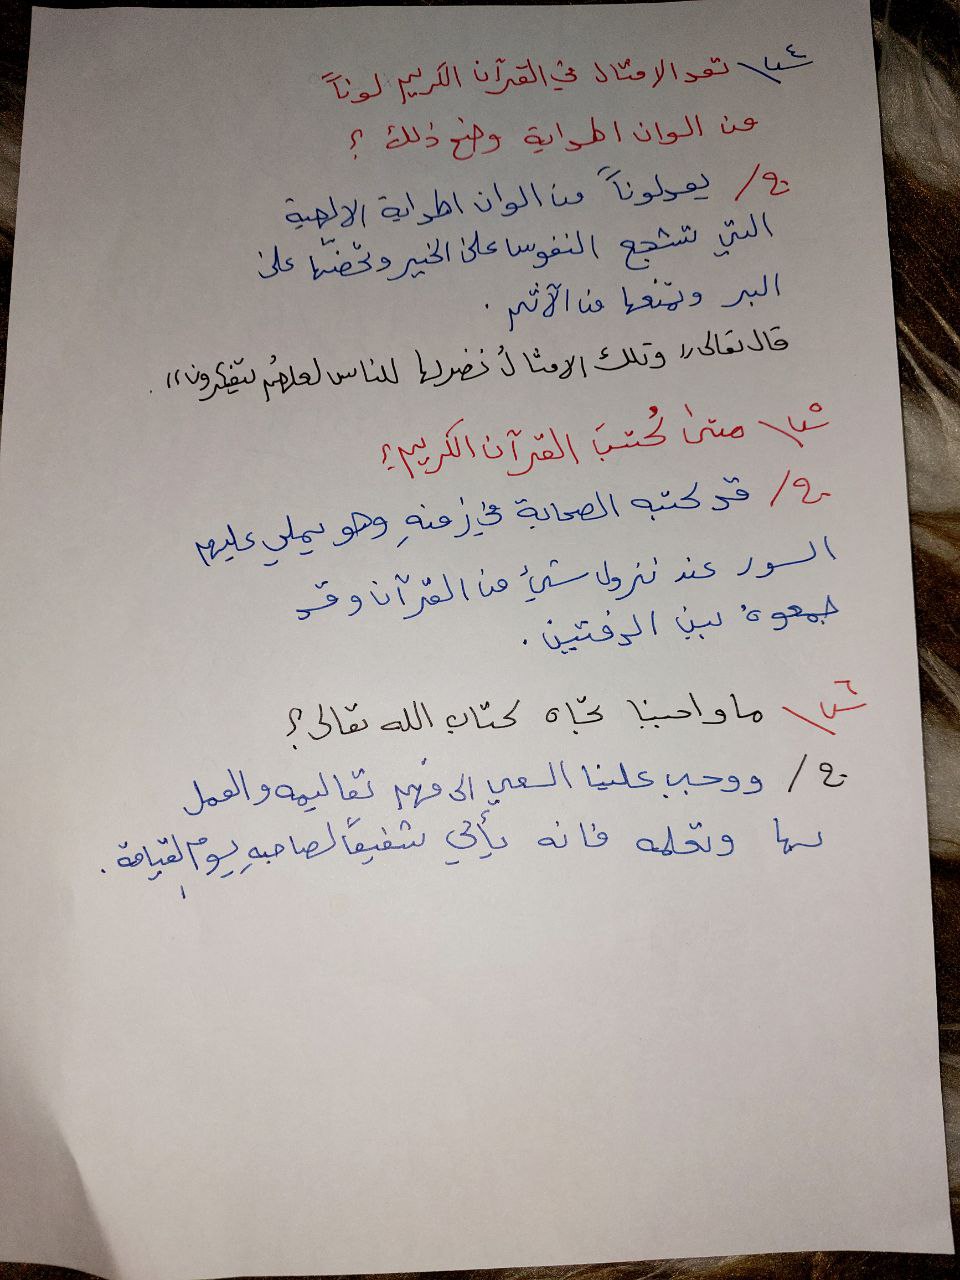 س٤\ تعد الامثال في القرآن الكريم لوناً
من الوان الهداية وضح ذلك ؟
ج/ يعد لوناً من الوان الهداية الالهية
التي تشجع النفوس على الخير وتحضّها على
البر وتمنعها من الآثم .
قال تعالى ,, وتلك الامثالُ نضربها للناس لعلهُم يتفكرون ,, .
س٥\ متىٰ كُتبَ القرآن الكريم ؟
ج/ قد كتبه الصحابة في زمنهِ وهو يملي عليهم
السور عند نزول شيءٍ من القرآن وقد
جمعوهُ بين الدفتين .
س٦\ ما واجبنا تجاه كتاب الله تعالى ؟
ج/ ووجب علينا السعي الى فهم تعاليمه والعمل
بها وتعلمه فانه يأتي شفيعاً لصاحبهِ يوم القيامة .